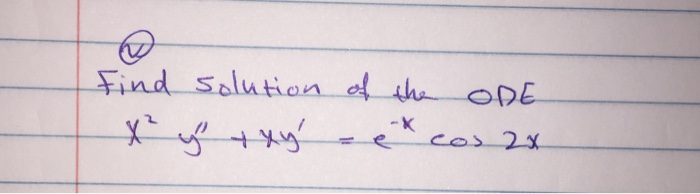 V
Find solution of the ODE
x² y'' + xy' = e^-x cos 2x